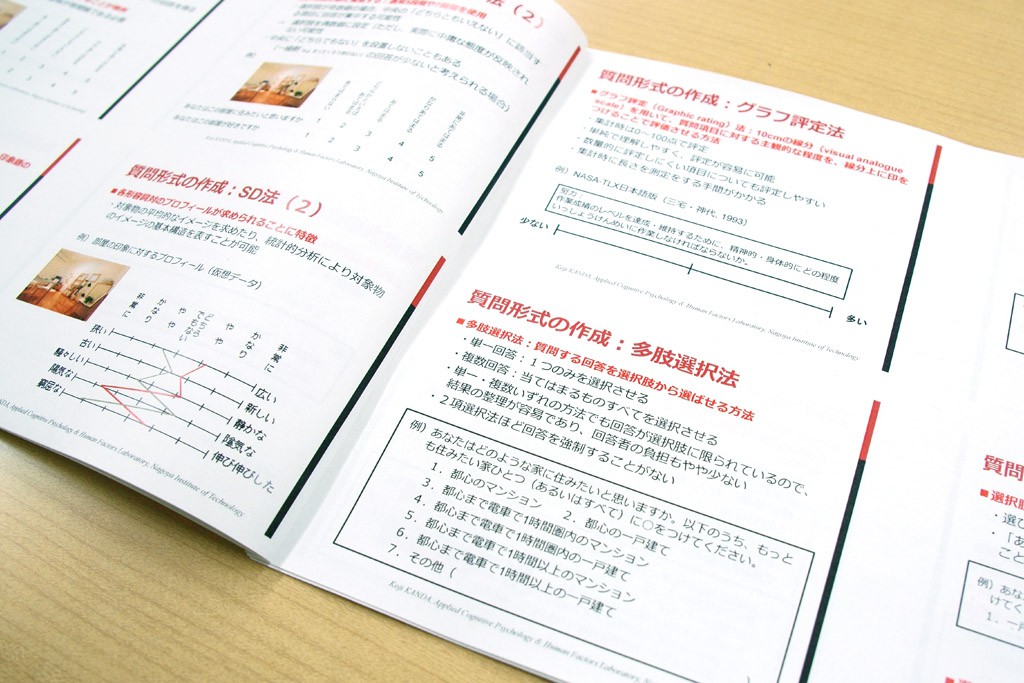 法（2）
を使用
「どちらともいえない」に該当す
ない可能性
（ただし、実際に中庸な態度が反映され
「どちらでもない」を設置しないこともある
の回答が少ないと考えられる場合）
あなたはこの部屋が好きですか
1 2 3 4 5
1 2 3 4 5
Koji KANDA, Applied Cognitive Psychology & Human Factors Laboratory, Nagoya Institute of Technology
質問形式の作成：SD法（2）
■各形容詞対のプロフィールが求められることに特徴
・対象物の平均的なイメージを求めたり、統計的分析により対象物
のイメージの基本構造を表すことが可能
例）部屋の印象に対するプロフィール（仮想データ）
非常に
かなり
やや
どちらでもない
やや
かなり
非常に
狭い 広い
古い 新しい
騒々しい 静かな
陽気な 陰気な
窮屈な 伸び伸びした
KANDA, Applied Cognitive Psychology & Human Factors Laboratory, Nagoya Institute of Technology
質問形式の作成：グラフ評定法
■グラフ評定（Graphic rating）法：10cmの線分（visual analogue
scale）を用いて、質問項目に対する主観的な程度を、線分上に印を
つけることで評価させる方法
・集計時は0～100点で評定
・単純で理解しやすく、評定が容易に可能
・数量的に評定しにくい項目についても評定しやすい
・集計時に長さを測定をする手間がかかる
例）NASA-TLX日本語版（三宅・神代, 1993）
努力
作業成績のレベルを達成・維持するために、精神的・身体的にどの程度
いっしょうけんめいに作業しなければならないか。
少ない
多い
Koji KANDA, Applied Cognitive Psychology & Human Factors Laboratory, Nagoya Institute of Technology
質問形式の作成：多肢選択法
■多肢選択法：質問する回答を選択肢から選ばせる方法
・単一回答：１つのみを選択させる
・複数回答：当てはまるものすべてを選択させる
・単一・複数いずれの方法でも回答が選択肢に限られているので、
結果の整理が容易であり、回答者の負担もやや少ない
・２項選択法ほど回答を強制することがない
例）あなたはどのような家に住みたいと思いますか。以下のうち、もっと
も住みたい家ひとつ（あるいはすべて）に○をつけてください。
1．都心のマンション 2．都心の一戸建て
3．都心まで電車で1時間圏内のマンション
4．都心まで電車で1時間圏内の一戸建て
5．都心まで電車で1時間以上のマンション
6．都心まで電車で1時間以上の一戸建て
7．その他（ ）
Koji KANDA, Applied Cognitive Psychology & Human Factors Laboratory, Nagoya Institute of
質問
■選択肢
・選び
・「あ
こと
例）あな
けてく
1．一戸